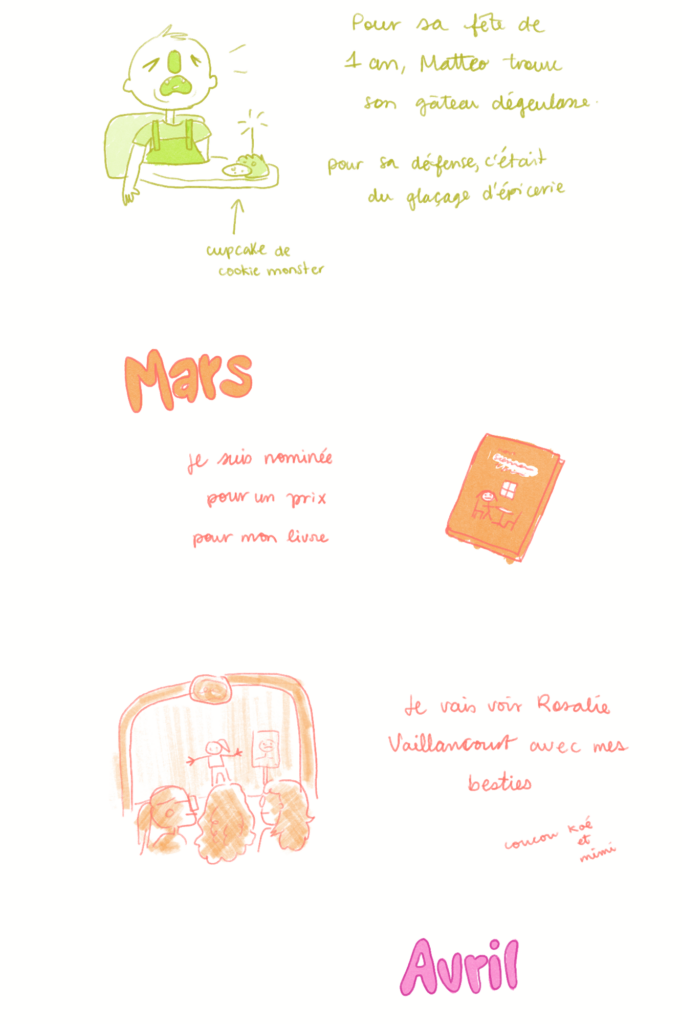 Pour sa fête de
1 an, Matteo trouve
son gâteau dégeulasse.
pour sa défense, c'était
du glaçage d'épicerie
cupcake de
cookie monster
Mars
je suis nominée
pour un prix
pour mon livre
Je vais voir Rosalie
Vaillancourt avec mes
besties
coucou Kaé
et
mimi
Avril